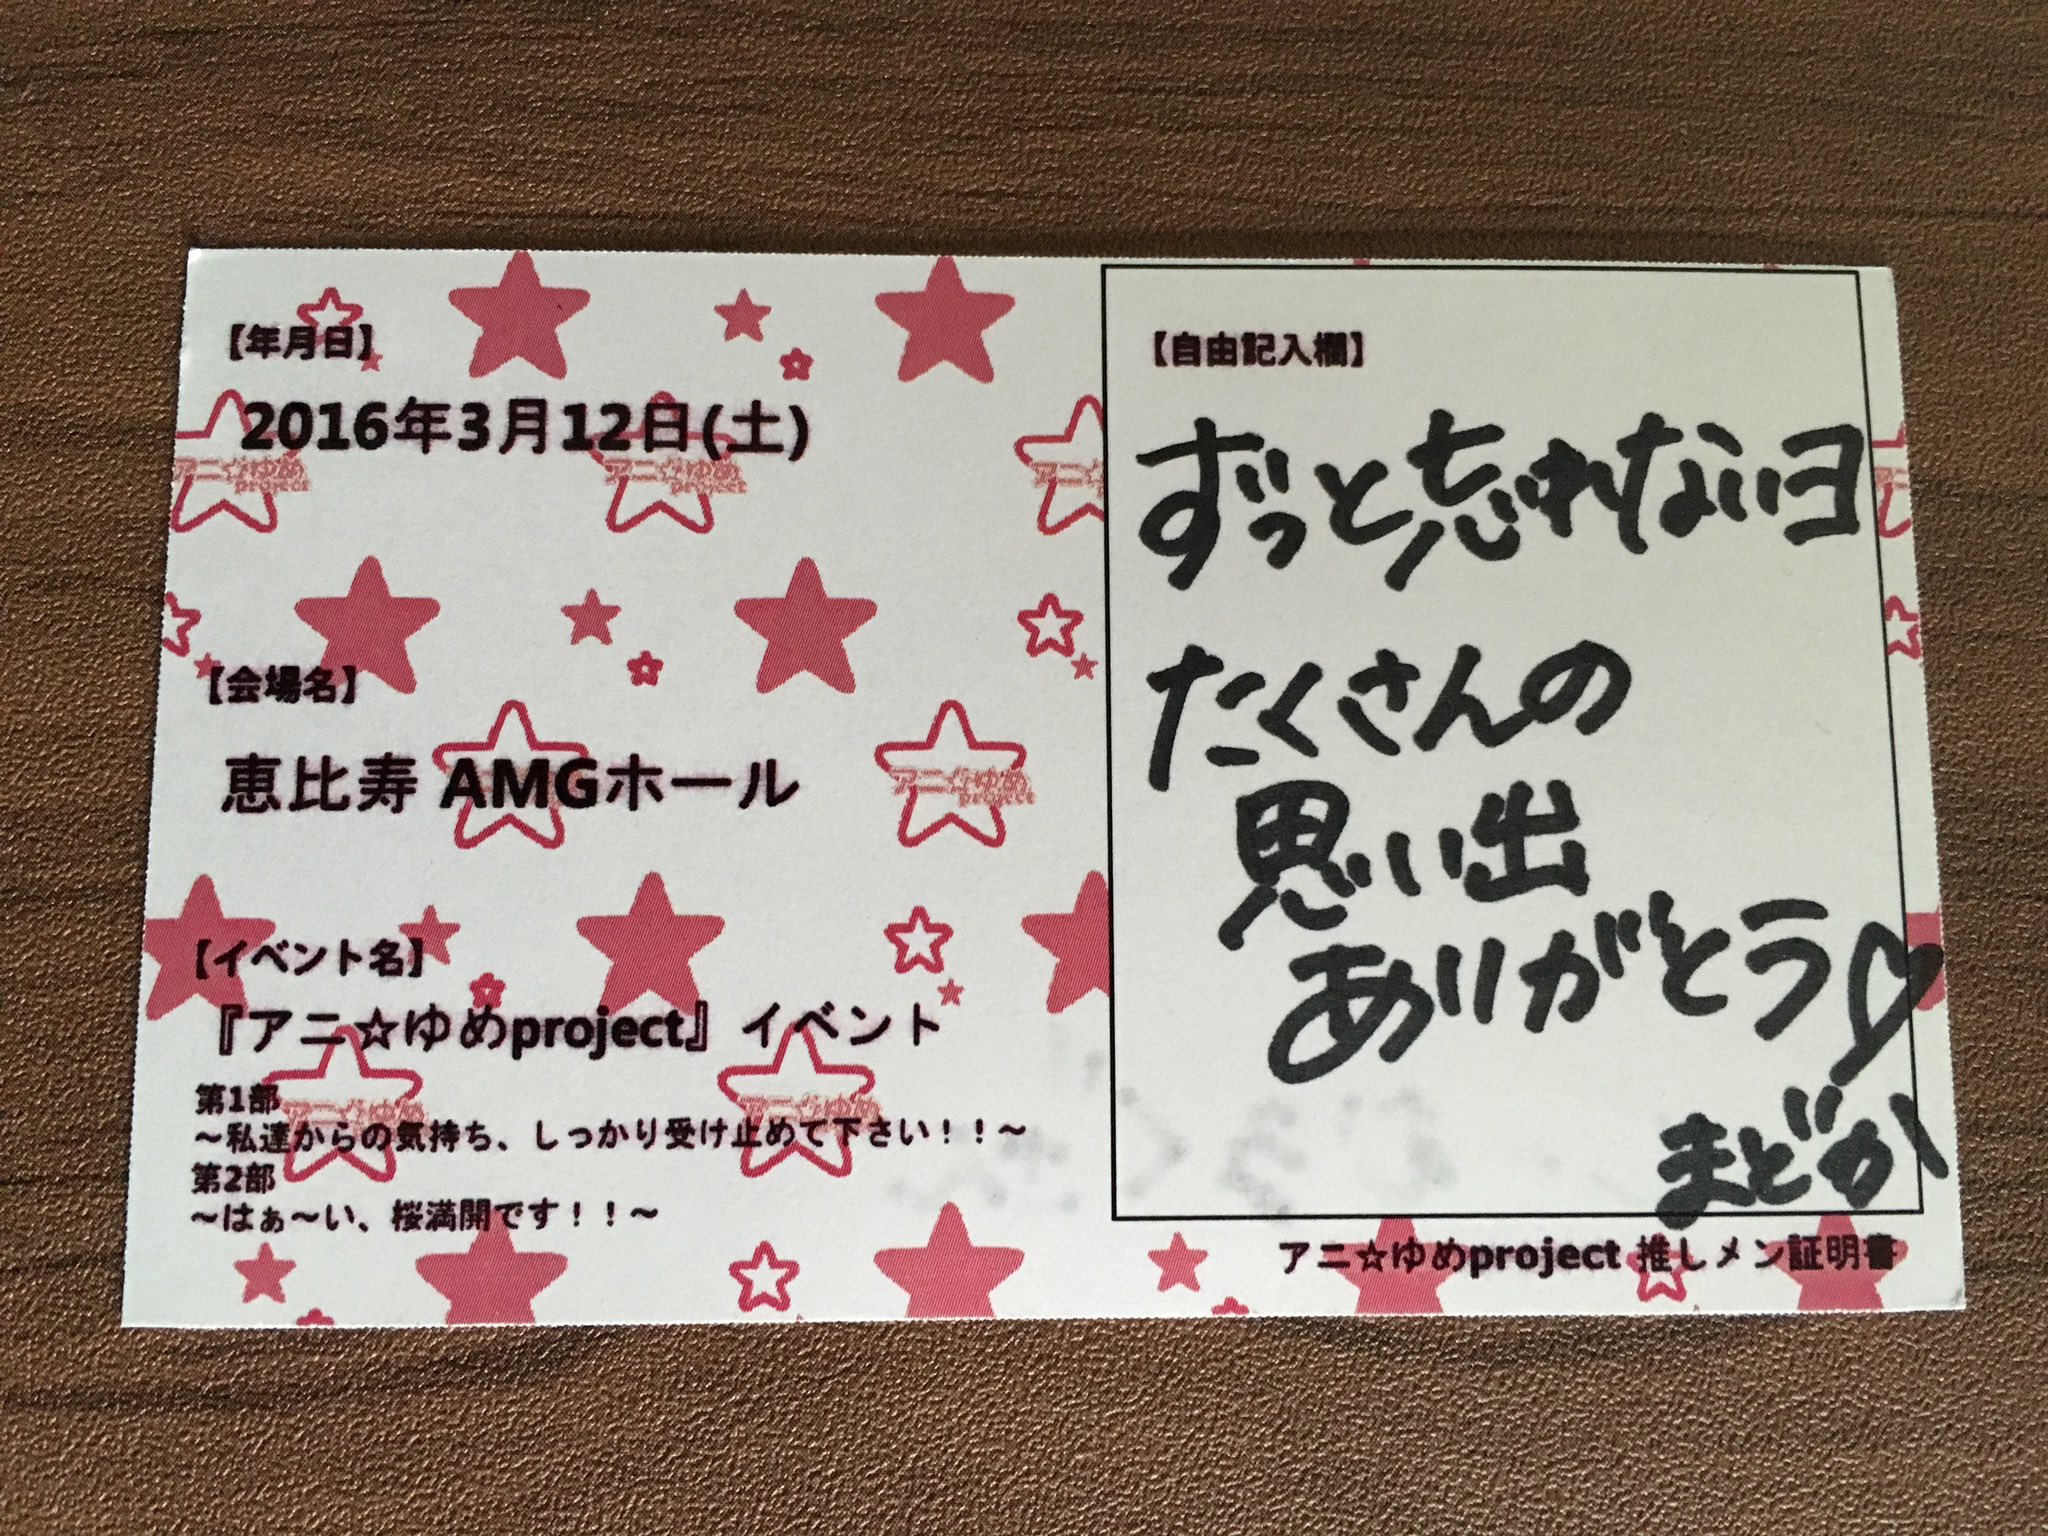 【年月日】
2016年3月12日(土)
【会場名】
恵比寿 AMGホール
【イベント名】
『アニ☆ゆめproject』イベント
第1部
～私達からの気持ち、しっかり受け止めて下さい！！～
第2部
～はぁ～い、桜満開です！！～
【自由記入欄】
ずっと忘れないヨ
たくさんの
思い出
ありがとう♡
まどか
アニ☆ゆめproject 推しメン証明書
アニ☆ゆめ
project
アニ☆ゆめ
project
アニ☆ゆめ
project
アニ☆ゆめ